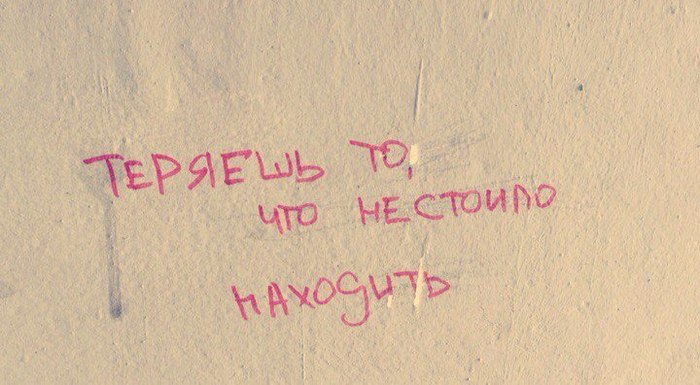 ТЕРЯЕШЬ ТО,
ЧТО НЕ СТОИЛО
НАХОДИТЬ